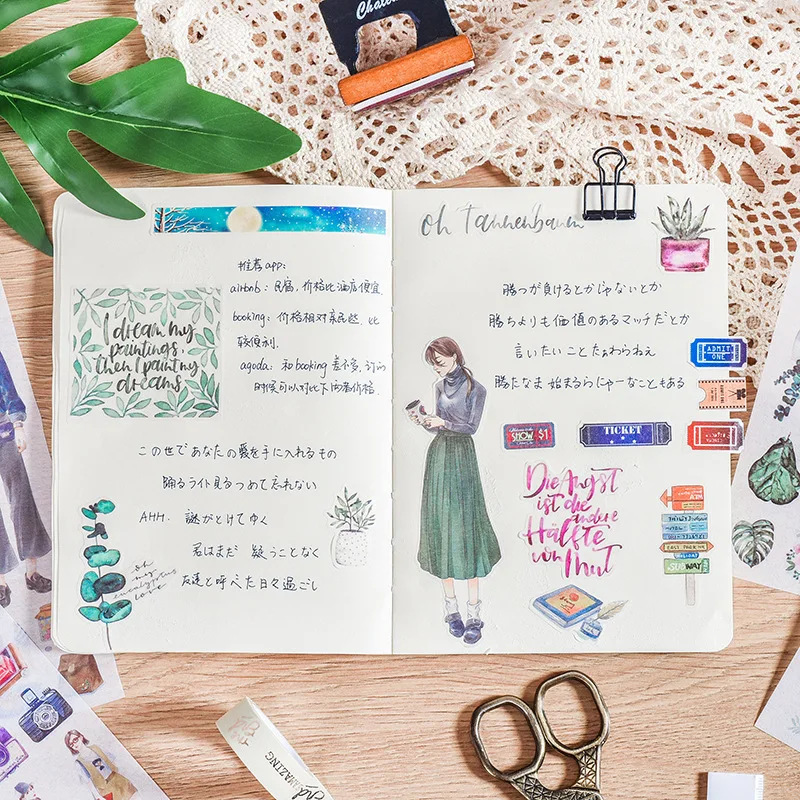 推荐app:
airbnb: 民宿,价格比酒店便宜.
booking: 价格相对亲民些, 比
较便利.
agoda: 和booking 差不多, 订的
时候可以对比下两者价格.
I dream my
paintings,
then I paint my
dreams
この世であなたの愛を手に入れるもの
踊るライト見るつめて忘れない
AHH. 謎がとけてゆく
君はまだ 疑うことなく
友達と呼べた日々過ごし
oh
my
eucalyptus
love
oh Tannenbaum
勝つが負けるとかじゃないとか
勝ちよりも価値のあるマッチだとか
言いたいことたぁわらねえ
勝たなま 始まるらにゃーなこともある
ADMIT
ONE
SHOW $1
TICKET
Die Angst
ist die
andere
Hälfte
von Mut
SUBWAY
AMAZING